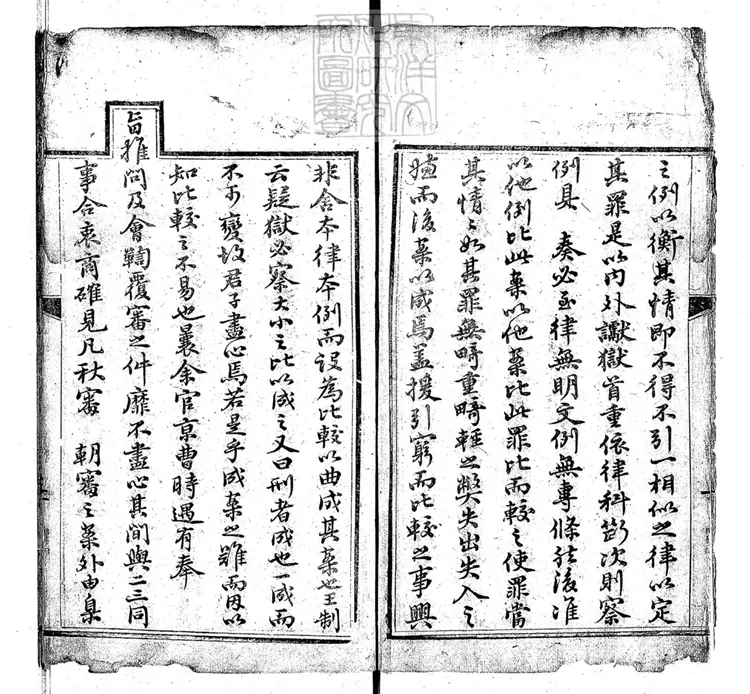 之例以衡其情即不得不引一相似之律以定
其罪是以內外讞獄首重依律科斷次則察
例具　奏必至律無明文例無專條然後准
以他例比此案以他案比此罪比而較之使罪當
其情情如其罪無畸重畸輕之弊失出失入之
而後案以成焉盖援引窮而比較之事興
非舍本律本例而设為比較以曲成其案也王制
云疑獄必察大小之比以成之又曰刑者成也一成而
不可變故君子盡心焉若是乎成案之難而因以
知比較之不易也曩余官京曹時遇有奉
旨推問及會鞫覆審之件靡不盡心其間與二三同
事合衷商確見凡秋審　朝審之案外由臬
東洋文
化研究
所圖書